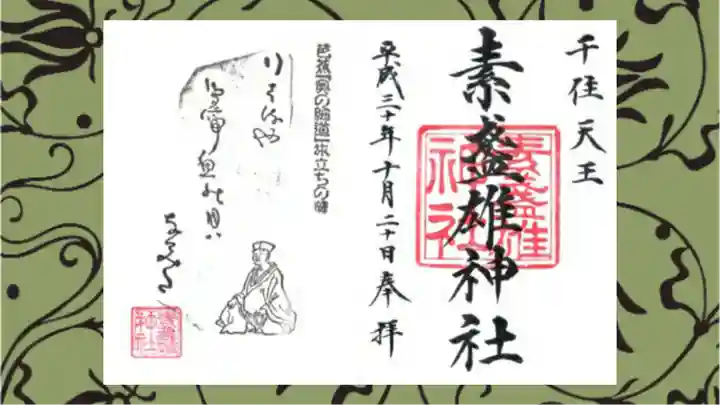 千住天王
素盞雄神社
素盞雄
神社
平成三十年十月二十日奉拝
芭蕉「奥の細道」旅立ちの碑
行はるや
鳥啼魚の目ハ
なみた